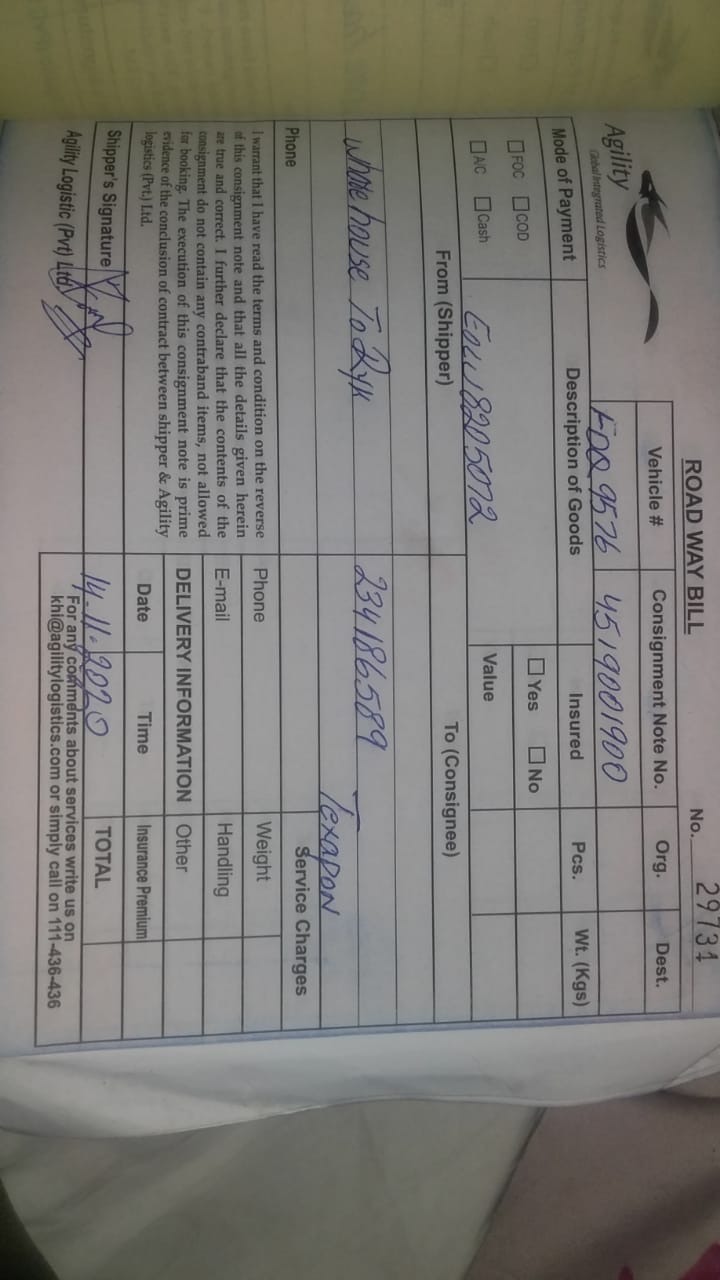 ROAD WAY BILL
No. 29731
Agility
Global Integrated Logistics
Vehicle #
Consignment Note No.
Org.
Dest.
4519001900
Mode of Payment
Description of Goods
Insured
Pcs.
Wt. (Kgs)
FOC COD
Yes No
A/C Cash
Value
8205072
From (Shipper)
To (Consignee)
house To Ryk
234186589
Texapon
Phone
Service Charges
I warrant that I have read the terms and condition on the reverse
of this consignment note and that all the details given herein
are true and correct. I further declare that the contents of the
consignment do not contain any contraband items, not allowed
for booking. The execution of this consignment note is prime
evidence of the conclusion of contract between shipper & Agility
logistics (Pvt.) Ltd.
Phone
Weight
E-mail
Handling
DELIVERY INFORMATION
Other
Date
Time
Insurance Premium
Shipper's Signature
14-11-2020
TOTAL
Agility Logistic (Pvt) Ltd
For any comments about services write us on
khi@agilitylogistics.com or simply call on 111-436-436